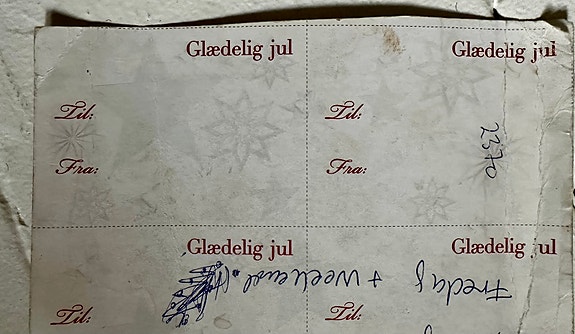 Glædelig jul
Glædelig jul
Til:
Til:
2370
Fra:
Fra:
Glædelig jul
Glædelig jul
Fredag + Weekend
Til:
Til: